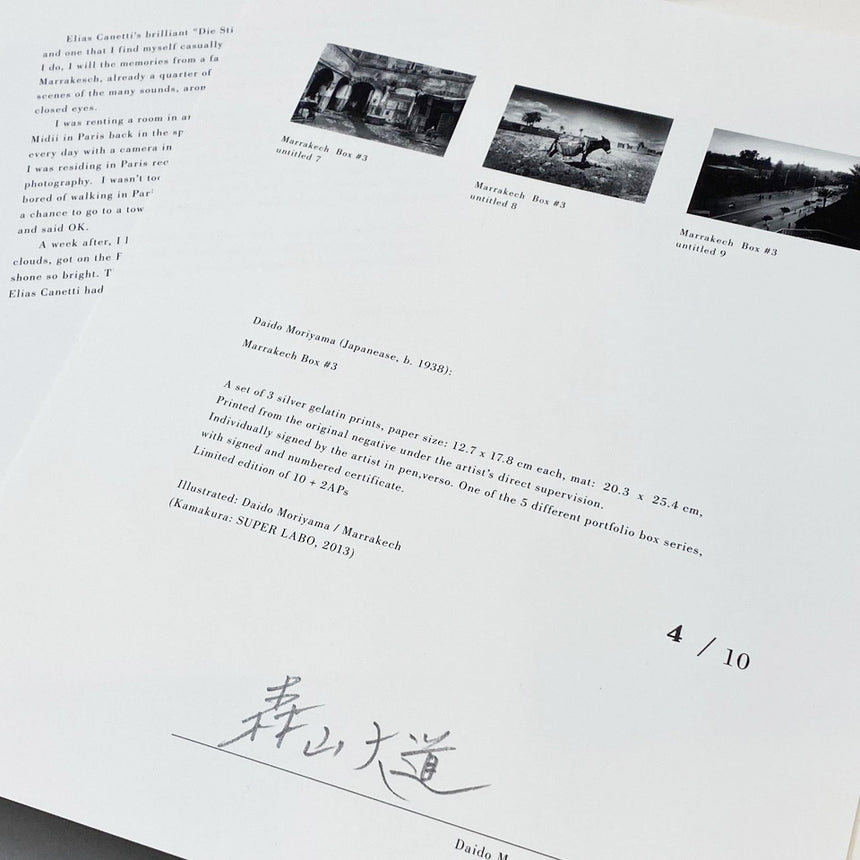 Elias Canetti's brilliant "Die Sti
and one that I find myself casually
I do, I will the memories from a fa
Marrakesch, already a quarter of
scenes of the many sounds, aron
closed eyes.
I was renting a room in ar
Midii in Paris back in the sp
every day with a camera in
I was residing in Paris rec
photography. I wasn't toc
bored of walking in Par
a chance to go to a tow
and said OK.
A week after, I l
clouds, got on the F
shone so bright. T
Elias Canetti had
Marrakech Box #3
untitled 7
Marrakech Box #3
untitled 8
Marrakech Box #3
untitled 9
Daido Moriyama (Japanease, b. 1938):
Marrakech Box #3
A set of 3 silver gelatin prints, paper size: 12.7 x 17.8 cm each, mat: 20.3 x 25.4 cm,
Printed from the original negative under the artist's direct supervision.
Individually signed by the artist in pen,verso. One of the 5 different portfolio box series,
with signed and numbered certificate.
Limited edition of 10 + 2APs
Illustrated: Daido Moriyama / Marrakech
(Kamakura: SUPER LABO, 2013)
4 / 10
森山大道
Daido M